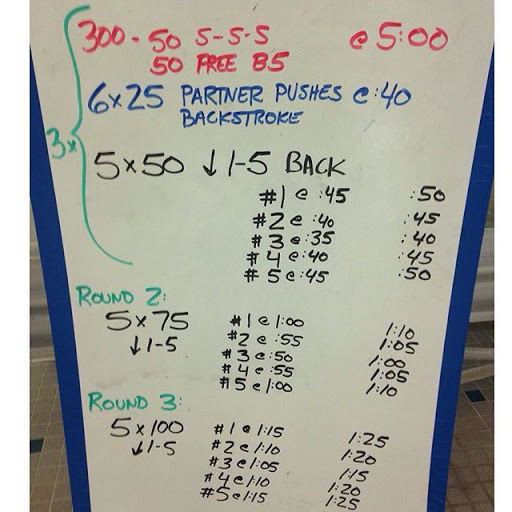 300 - 50 5-5-5 @ 5:00
50 FREE B5
3x
6x25 PARTNER PUSHES @ :40
BACKSTROKE
5x50 ↓1-5 BACK
#1 @ :45 :50
#2 @ :40 :45
#3 @ :35 :40
#4 @ :40 :45
#5 @ :45 :50
ROUND 2:
5x75 #1 @ 1:00 1:10
↓1-5 #2 @ :55 1:05
#3 @ :50 1:00
#4 @ :55 1:05
#5 @ 1:00 1:10
ROUND 3:
5x100 #1 @ 1:15 1:25
↓1-5 #2 @ 1:10 1:20
#3 @ 1:05 1:15
#4 @ 1:10 1:20
#5 @ 1:15 1:25